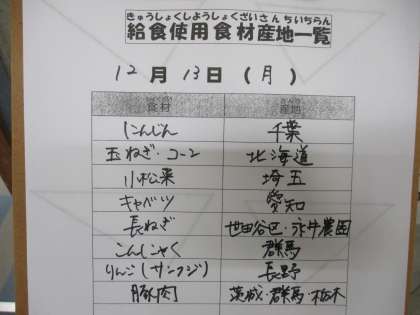 きゅうしょくしようしょくざいさんちいちらん
給食使用食材産地一覧
12月13日(月)
食材 産地
にんじん 千葉
玉ねぎ・コーン 北海道
小松菜 埼玉
キャベツ 愛知
長ねぎ 世田谷区・永井農園
こんにゃく 群馬
りんご(サンフジ) 長野
豚肉 茨城・群馬・栃木